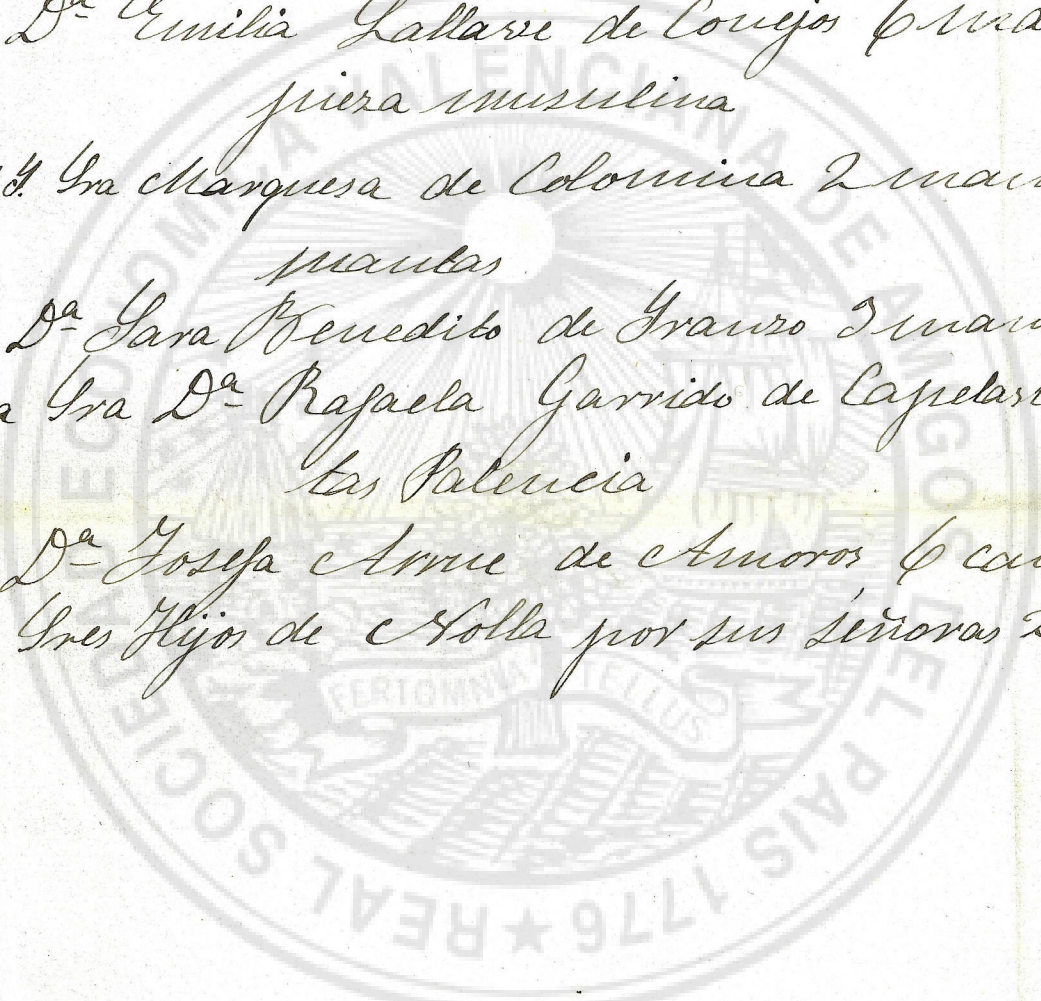 Dª Emilia Lallare de Conejos 6 ma
pieza musulina
Y. Sra Marquesa de Colomina 2 man
mantas
Dª Sara Benedito de Granzo 3 man
a Sra Dª Rafaela Garrido de Capelas
tas Palencia
Dª Josefa Arrue de Amoros 6 ca
Sres Hijos de Nolla por sus señoras 2
REAL SOCIEDAD ECONOMICA VALENCIANA DE AMIGOS DEL PAIS 1776
FERT OMNIA TELLUS